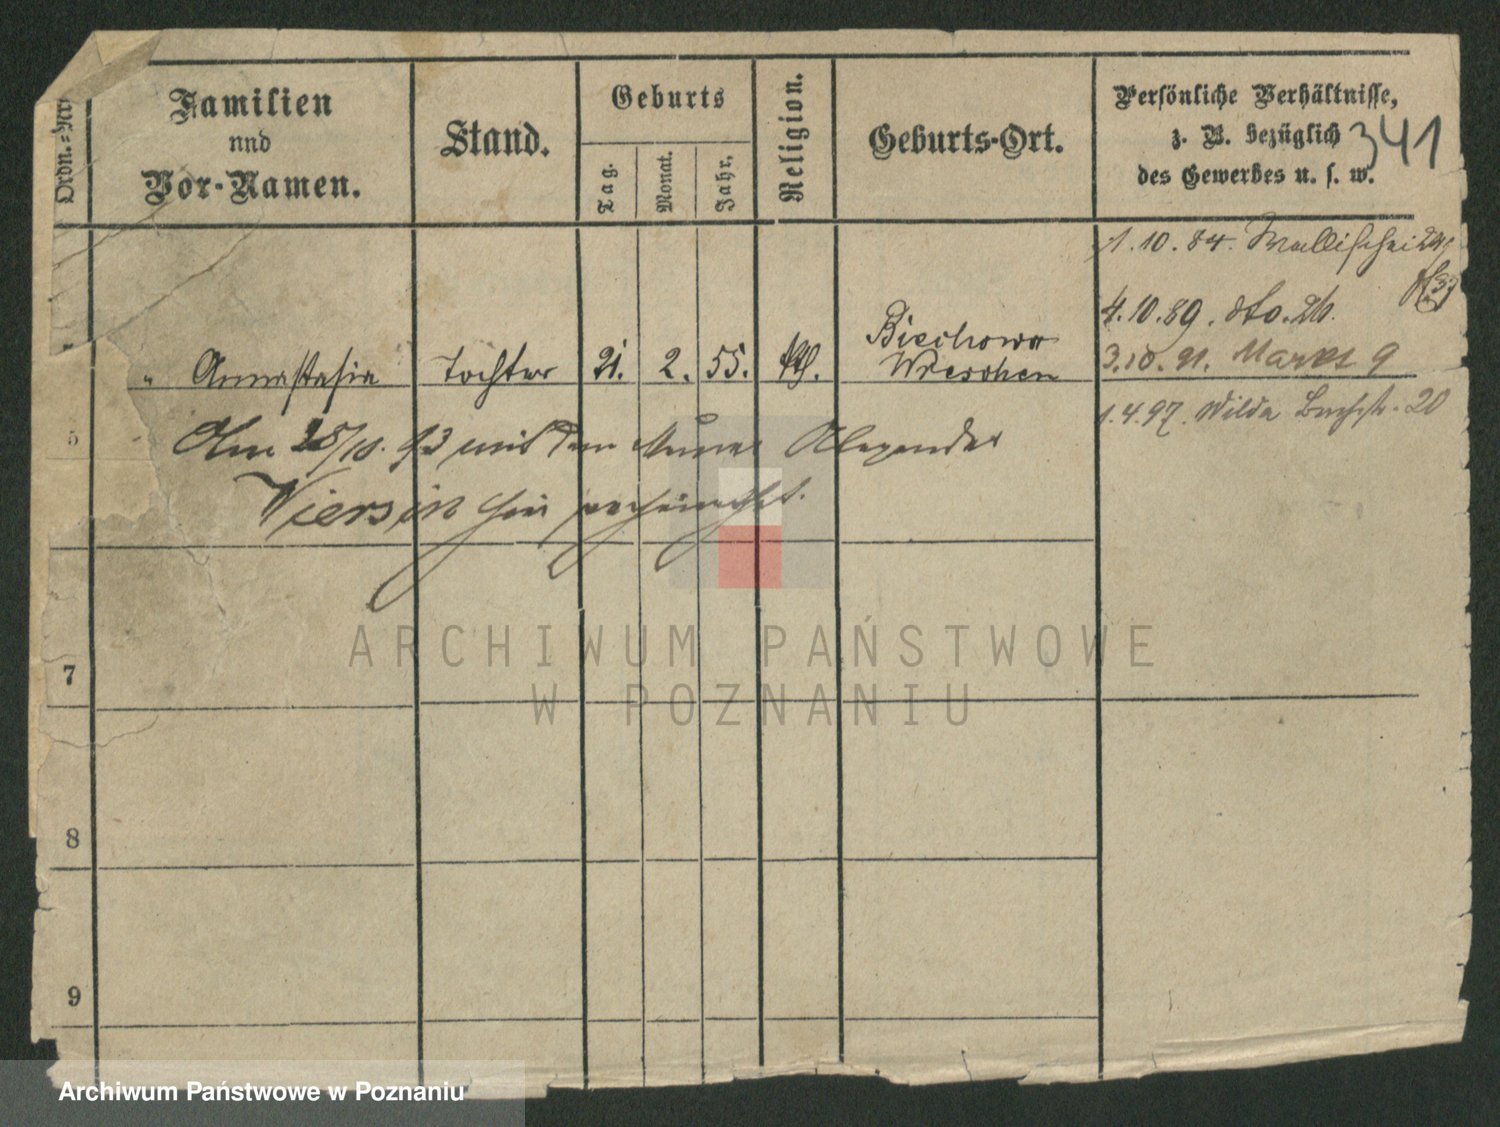 Ordn.=Nrn
Familien
nnd
Vor-Namen.
Stand.
Geburts
Tag.
Monat.
Jahr.
Religion.
Geburts-Ort.
Persönliche Verhältnisse,
z. B. bezüglich
des Gewerbes u. s. w.
341
1.10.84. Wallischei
4.10.89. dto. 26.
3.10.91. Markt 9
1.4.97. Wilda 20
" Annastasia Tochter 21. 2. 55. kth. Biechowo
Wreschen
5
Am 25/10. 93 mit dem Maurer Alexander
Viersin hier verheirathet.
7
8
9
ARCHIWUM PAŃSTWOWE
W POZNANIU
Archiwum Państwowe w Poznaniu